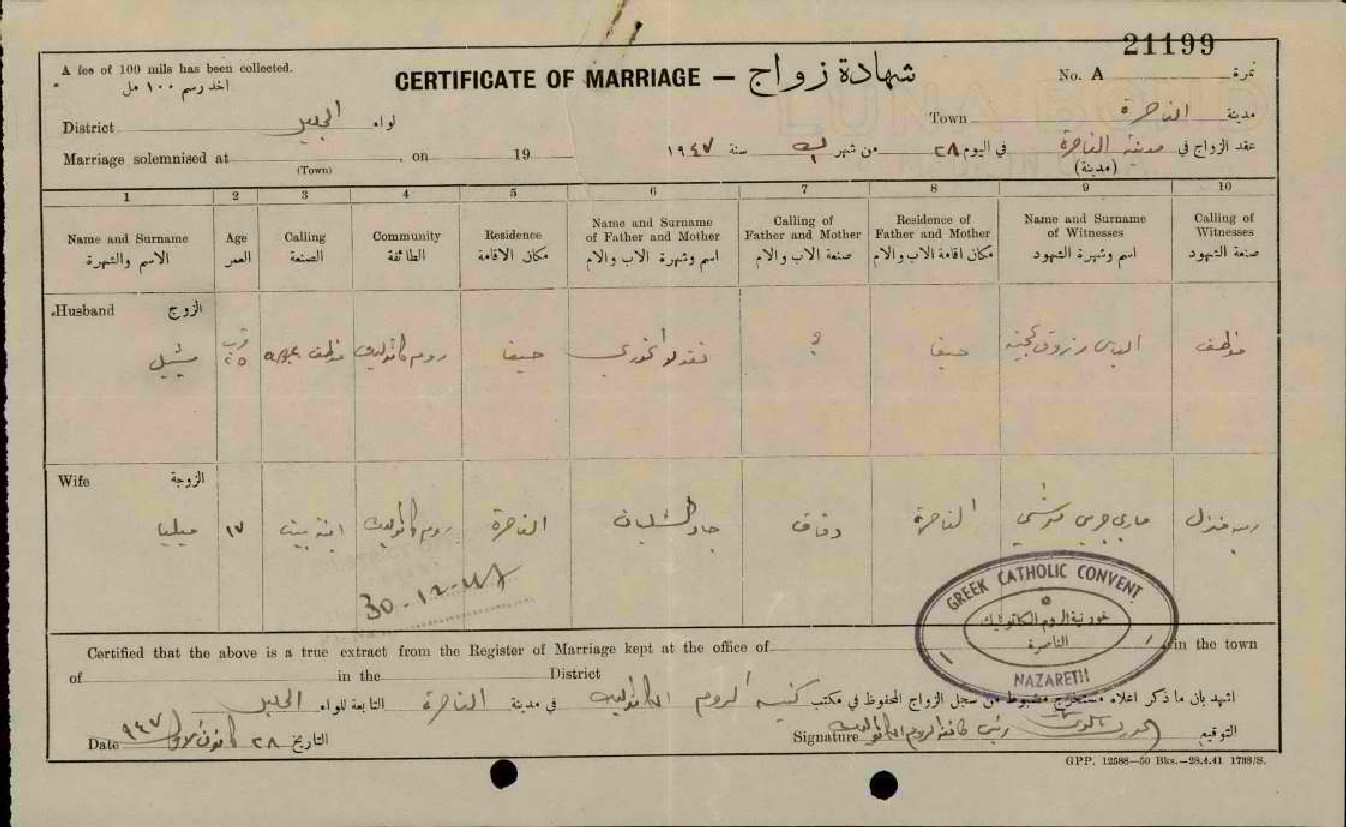 21199
A fee of 100 mils has been collected.
اخذ رسم ١٠٠ مل
CERTIFICATE OF MARRIAGE — شهادة زواج
No. A نمرة
District الجليل لواء
Town الناصرة مدينة
Marriage solemnised at , on 19
(Town)
عقد الزواج في مدينة الناصرة في اليوم ٢٨ من شهر سنة ١٩٤٧
(مدينة)
1 2 3 4 5 6 7 8 9 10
Name and Surname
الاسم والشهرة
Age
العمر
Calling
الصنعة
Community
الطائفة
Residence
مكان الاقامة
Name and Surname of Father and Mother
اسم وشهرة الاب والام
Calling of Father and Mother
صنعة الاب والام
Residence of Father and Mother
مكان اقامة الاب والام
Name and Surname of Witnesses
اسم وشهرة الشهود
Calling of Witnesses
صنعة الشهود
Husband الزوج
ميشيل
٢٥
موظف
روم كاثوليك
حيفا
نقولا الخوري
حيفا
موظف
Wife الزوجة
ميليا
١٧
ابنة بيت
روم كاثوليك
الناصرة
جاد
دقاق
الناصرة
ماري جريس
30-12-47
GREEK CATHOLIC CONVENT
خورنية الروم الكاثوليك
الناصرة
NAZARETH
Certified that the above is a true extract from the Register of Marriage kept at the office of in the town
of in the District
اشهد بان ما ذكر اعلاه مستخرج مضبوط من سجل الزواج المحفوظ في مكتب كنيسة الروم الكاثوليك في مدينة الناصرة التابعة للواء الجليل
Date ٢٨ كانون الاول ٩٤٧ التاريخ
Signature رئيس طائفة الروم الكاثوليك التوقيع
GPP. 12588—50 Bks.—28.4.41 1738/S.